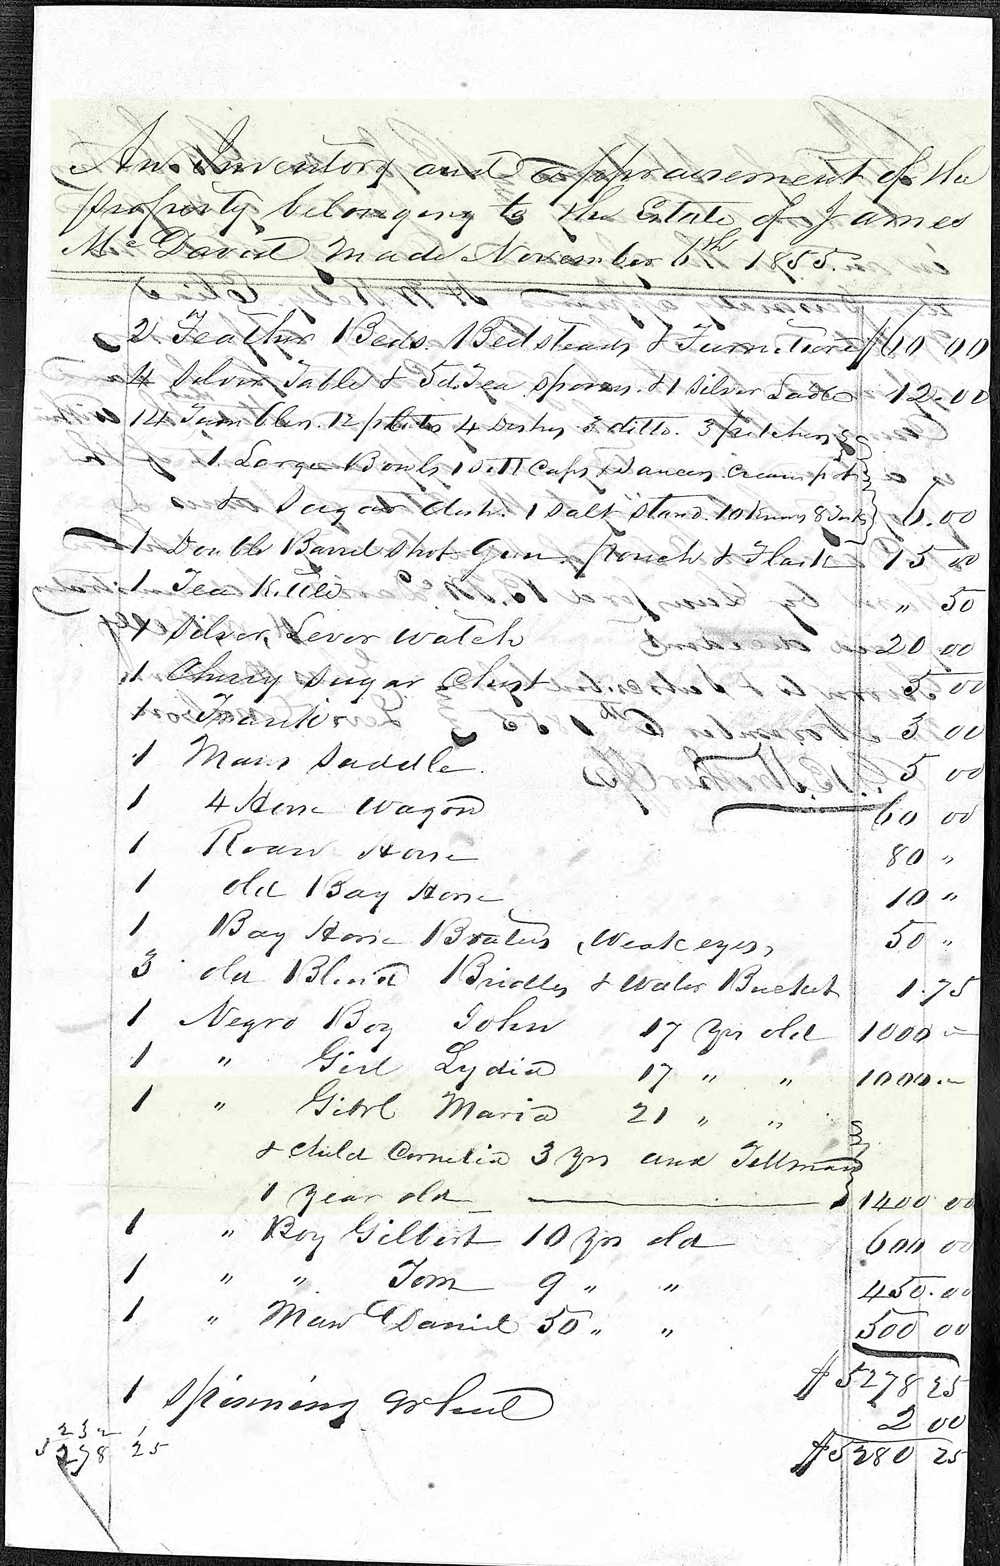 An Inventory and appraisement of the
property belonging to the Estate of James
McDavid made November 6th 1855.
2 Feather Beds. Bedsteads & Furniture $60 00
4 Silver Table & 5 do Tea spoons & 1 Silver Ladle 12.00
14 Tumblers. 12 plates 4 Dishes 3 ditto. 3 pitchers
1 Large Bowls 1 Sett Cups & Saucers cream pot
& Sugar dish. 1 Salt Stand. 10 Knives 8 Forks 6.00
1 Double Barrel Shot Gun pouch & Flask 15 00
1 Tea Kettle " 50
1 Silver, Lever Watch 20 00
1 Cherry Sugar Chest 5 00
1 3 00
1 Mans Saddle. 5 00
1 4 Horse Wagon 60 00
1 Roan Horse 80 "
1 old Bay Horse 10 "
1 Bay Horse Brutus (Weak eyes) 50 "
3 old Blind Bridles & Water Bucket 1.75
1 Negro Boy John 17 yrs old 1000
1 " Girl Lydia 17 " " 1000.
1 " Girl Maria 21 " "
& child Cornelia 3 yrs and Tillman
1 year old 1400 00
1 " Boy Gilbert 10 yrs old 600 00
1 " " Tom 9 " " 450.00
1 " Man Daniel 50 " " 500 00
$5278 25
1 Spinning wheel 2 00
$5280 25
232
5278 25